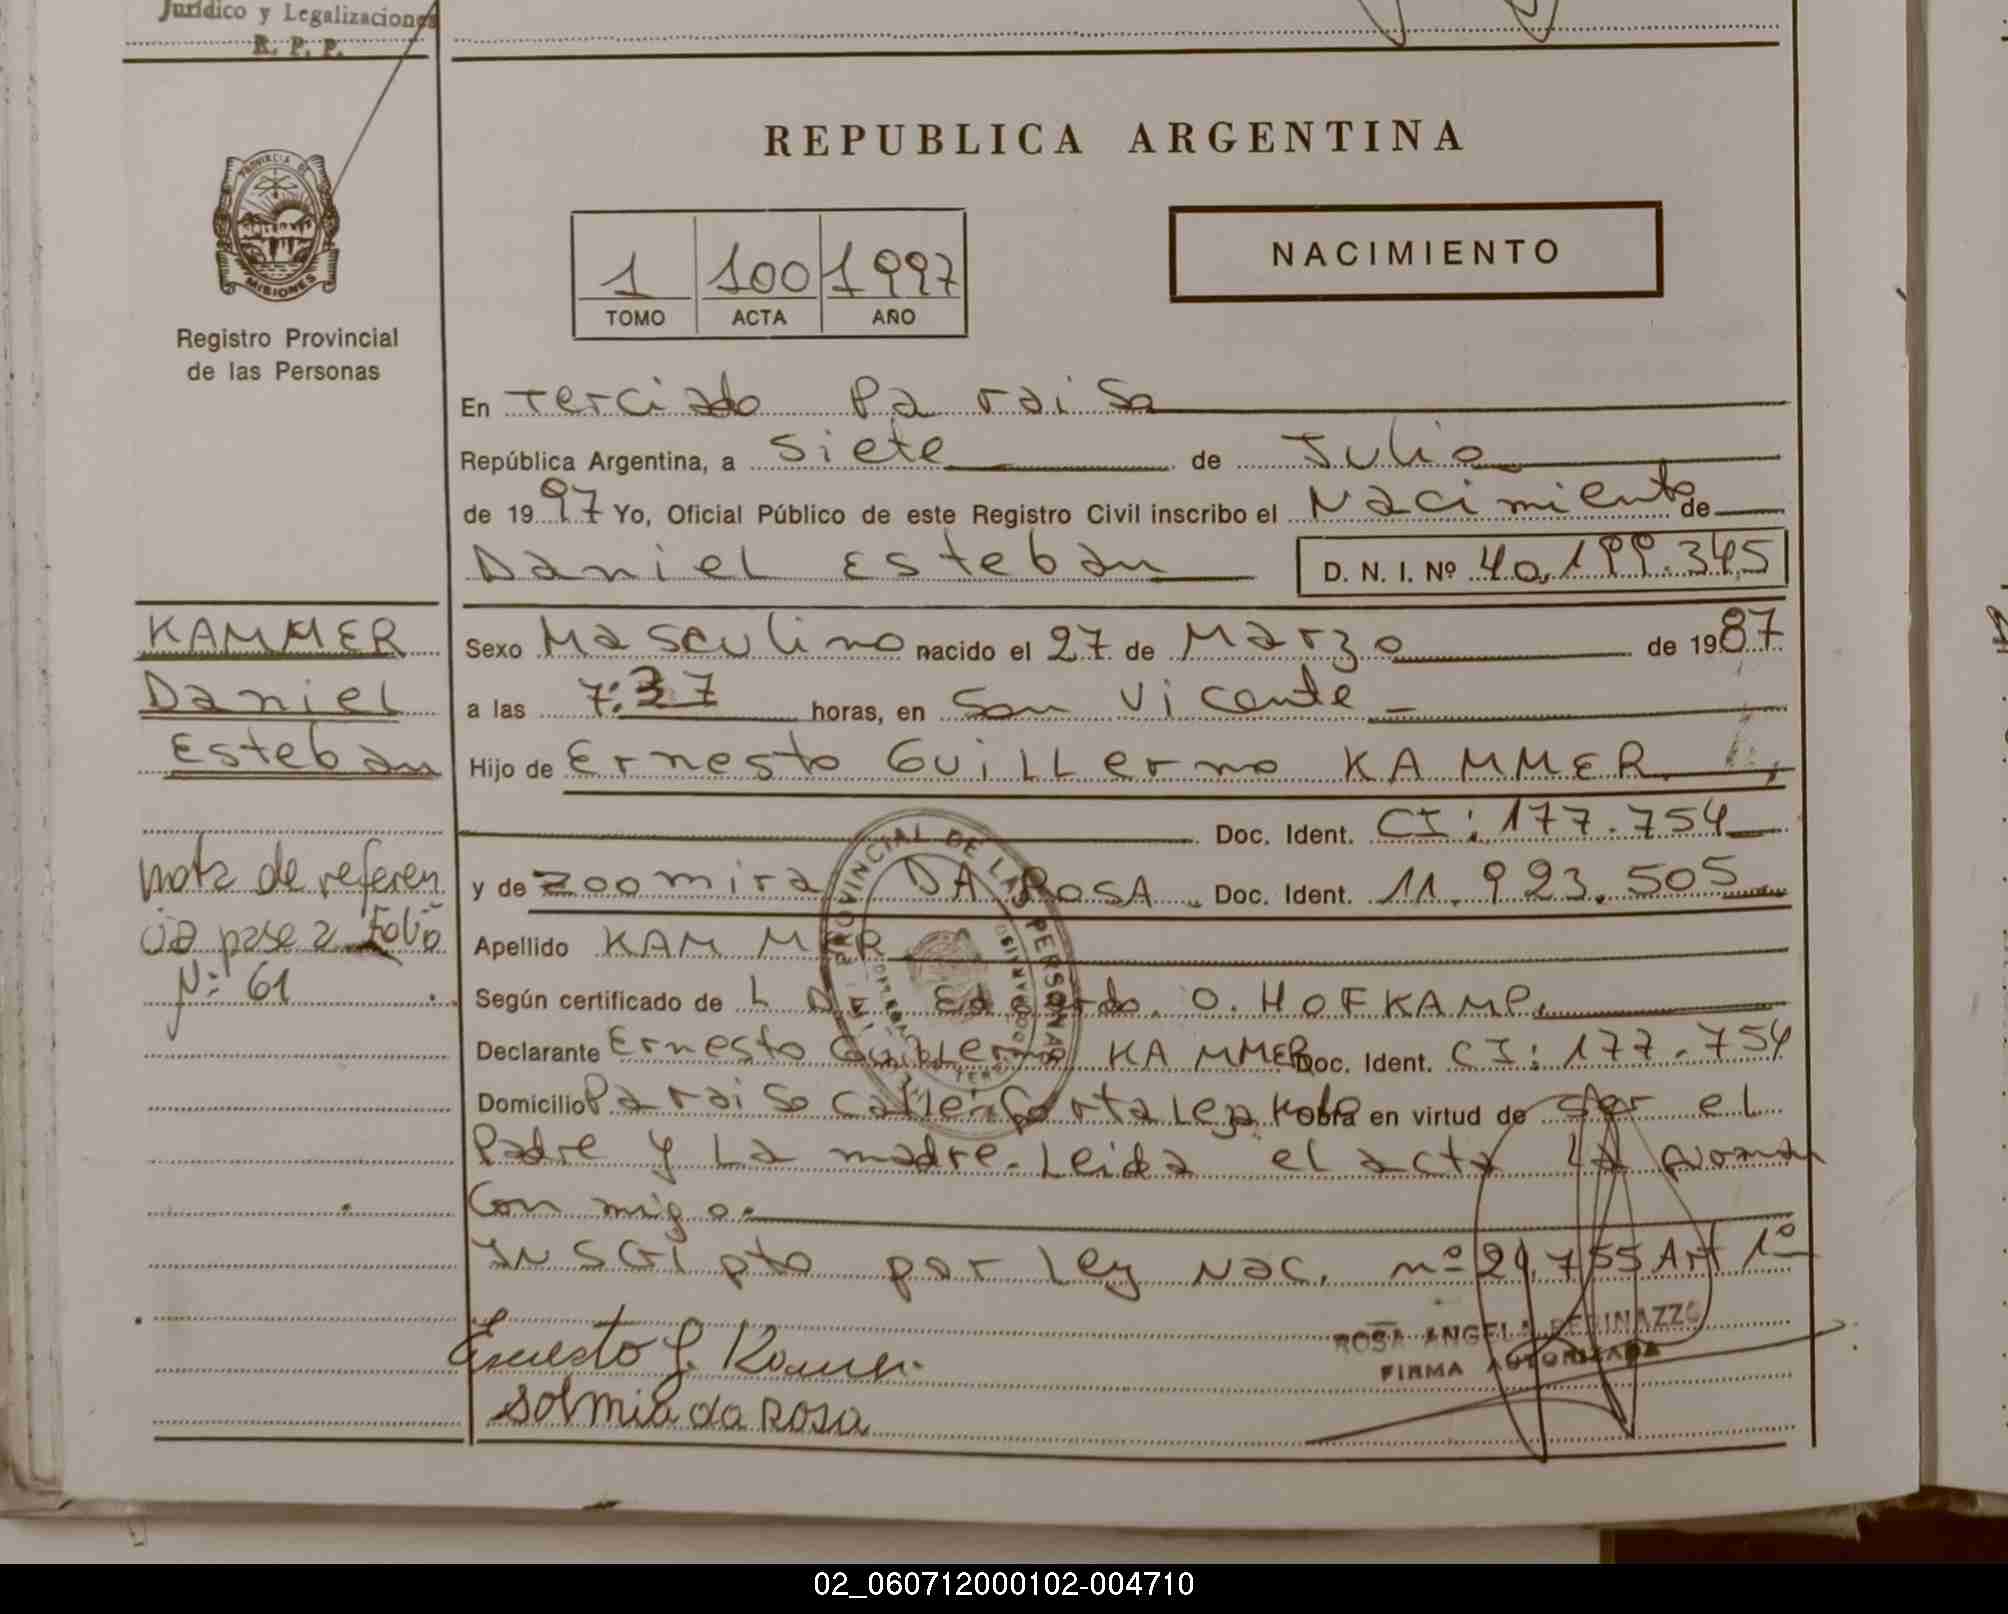 Jurídico y Legalizaciones
R. P. P.
PROVINCIA DE
MISIONES
Registro Provincial
de las Personas
REPUBLICA ARGENTINA
1 100 1997
TOMO ACTA AÑO
NACIMIENTO
En Terciado Paraiso
República Argentina, a siete de Julio
de 1997 Yo, Oficial Público de este Registro Civil inscribo el Nacimiento de
Daniel Esteban D. N. I. Nº 40.199.345
KAMMER
Daniel
Esteban
Sexo Masculino nacido el 27 de Marzo de 1987
a las 7:37 horas, en San Vicente
Hijo de Ernesto Guillermo KAMMER
Doc. Ident. CI: 177.754
y de Zoomira DA ROSA Doc. Ident. 11.923.505
nota de referen
cia pase a Folio
Nº 61
Apellido KAMMER
Según certificado de L DE Eduardo. O. HOFKAMP.
Declarante Ernesto Guillermo KAMMER Doc. Ident. CI: 177.754
Domicilio Paraiso calle fortaleza Obra en virtud de ser el
Padre y La madre. Leida el acta La firman
Conmigo.
INSCripto por Ley Nac. nº 24.755 Art 1º
Ernesto G. Kamer
Solmira da Rosa
ROSA ANGELA PERINAZZO
FIRMA AUTORIZADA
PROVINCIAL DE LAS PERSONAS
02_060712000102-004710